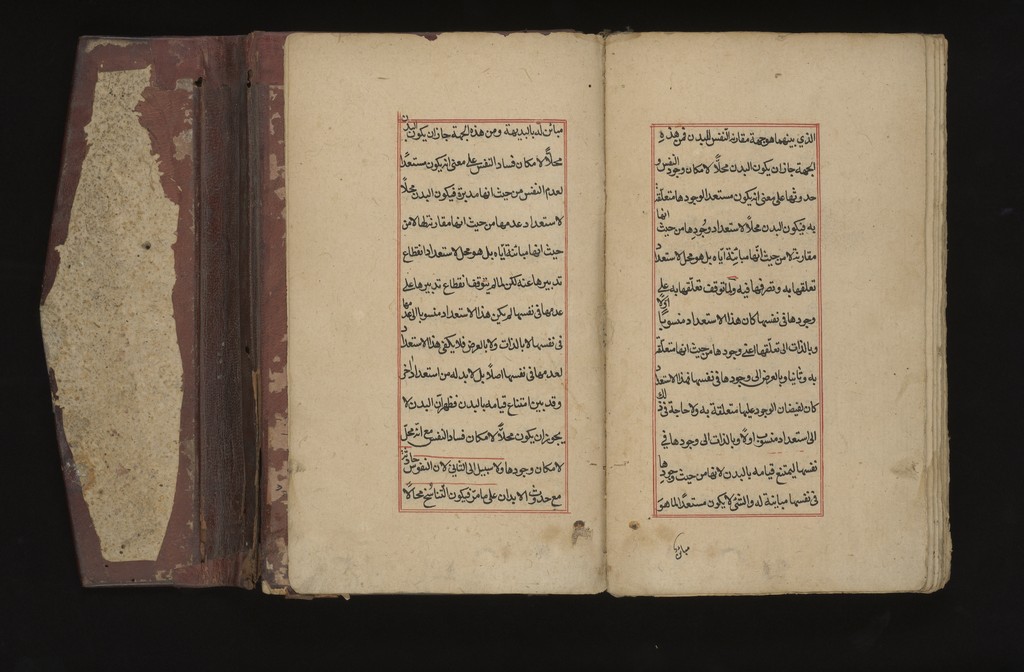 الذي بينهما هو جهة مقارنة النفس للبدن فمن هذه
الجهة جاز ان يكون البدن محلًا لامكان وجود النفس و
حدوثها على معنى انه يكون مستعد الوجودها متعلقة
به فيكون البدن محلًا لاستعداد وجودها من حيث انها
مقارنة لا من حيث انها مباينة اياه بل هو محل لاستعداد
تعلقها به وتصرفها فيه ولما توقف تعلقها به على
وجودها في نفسها كان هذا الاستعداد منسوبا اولًا
وبالذات الى تعلقها اعنى وجودها من حيث انها متعلقة
به وثانيا وبالعرض الى وجودها في نفسها فهذا الاستعداد
كان لفيضان الوجود عليها متعلقة به ولا حاجة في ذلك
الى استعداد منسوب اولًا وبالذات الى وجودها في
نفسها ليمتنع قيامه بالبدن لانها من حيث وجودها
في نفسها مباينة له والشئ لا يكون مستعدًا لما هو
مباين
مباين له بالبديهة ومن هذه الجهة جاز ان يكون البدن
محلًا لامكان فساد النفس على معنى انه يكون مستعدًا
لعدم النفس من حيث انها مدبرة فيكون البدن محلًا
لاستعداد عدمها من حيث انها مقارنة لها لا من
حيث انها مباينة اياه بل هو محل لاستعداد انقطاع
تدبيرها عنه لكن لما لم يتوقف انقطاع تدبيرها على
عدمها في نفسها لم يكن هذا الاستعداد منسوبا الى عدمها
في نفسها لا بالذات ولا بالعرض فلا يكفى هذا الاستعداد
لعدمها في نفسها اصلًا بل لا بد له من استعداد اخر
وقد بين امتناع قيامه بالبدن فظهر ان البدن لا
يجوز ان يكون محلًا لامكان فساد النفس مع انه محل
لامكان وجودها ولا سبيل الى الثانى لان النفوس حادثة
مع حدوث الابدان على ما مر فيكون التناسخ محالًا